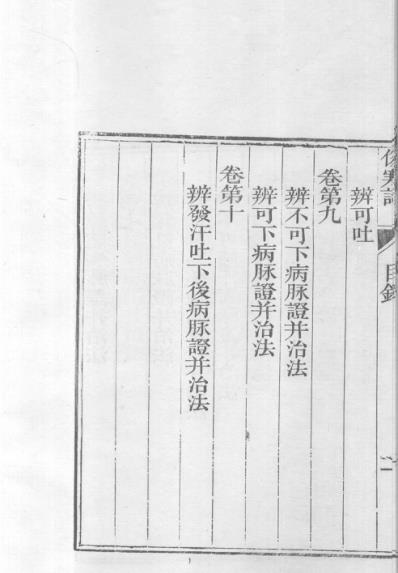 傷寒論 目錄
辨可吐
卷第九
辨不可下病脉證并治法
辨可下病脉證并治法
卷第十
辨發汗吐下後病脉證并治法